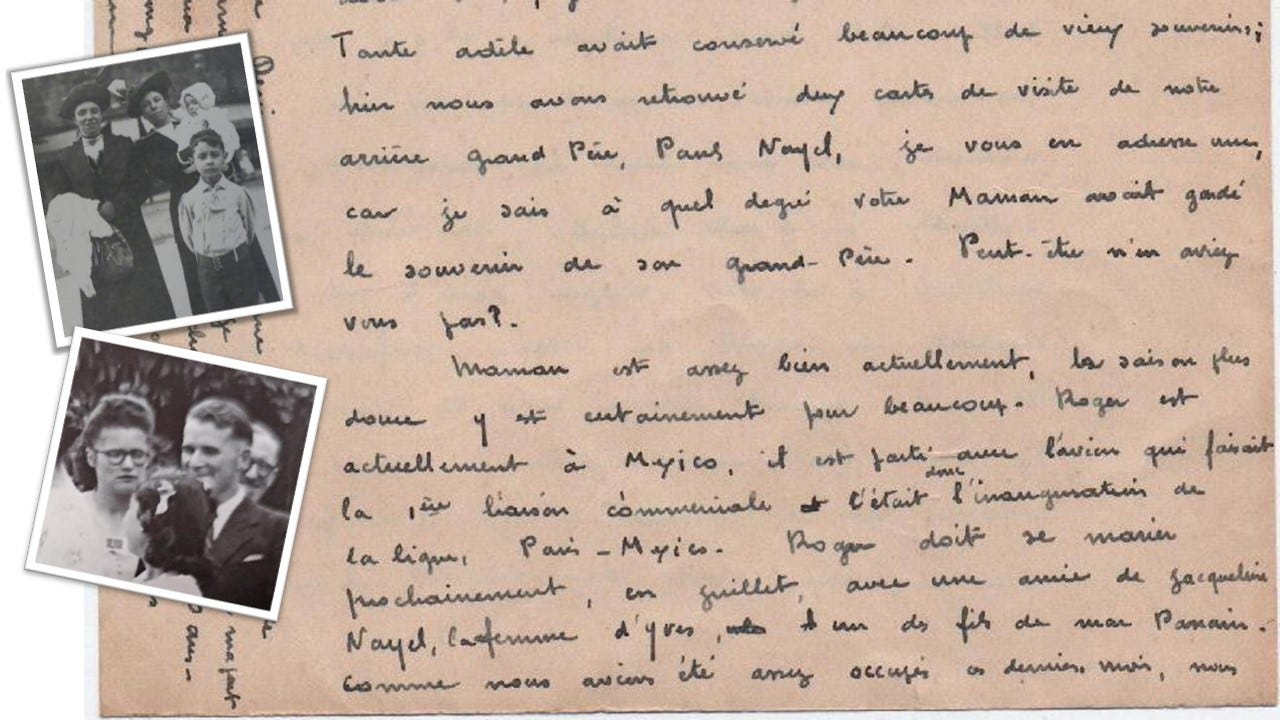 Tante adèle avait conservé beaucoup de vieux souvenirs;
hier nous avons retrouvé deux cartes de visite de notre
arrière grand Père, Paul Nayel, je vous en adresse une,
car je sais à quel degré votre Maman avait gardé
le souvenir de son grand-Père. Peut-être n'en aviez
vous pas?.
Maman est assez bien actuellement, la saison plus
douce y est certainement pour beaucoup. Roger est
actuellement à Mexico, il est parti avec l'avion qui faisait
la 1ère liaison commerciale et c'était donc l'inauguration de
la ligne, Paris-Mexico. Roger doit se marier
prochainement, en juillet, avec une amie de Jacqueline
Nayel, la femme d'Yves, un des fils de mon Parrain.
Comme nous avions été assez occupés ces derniers mois, nous